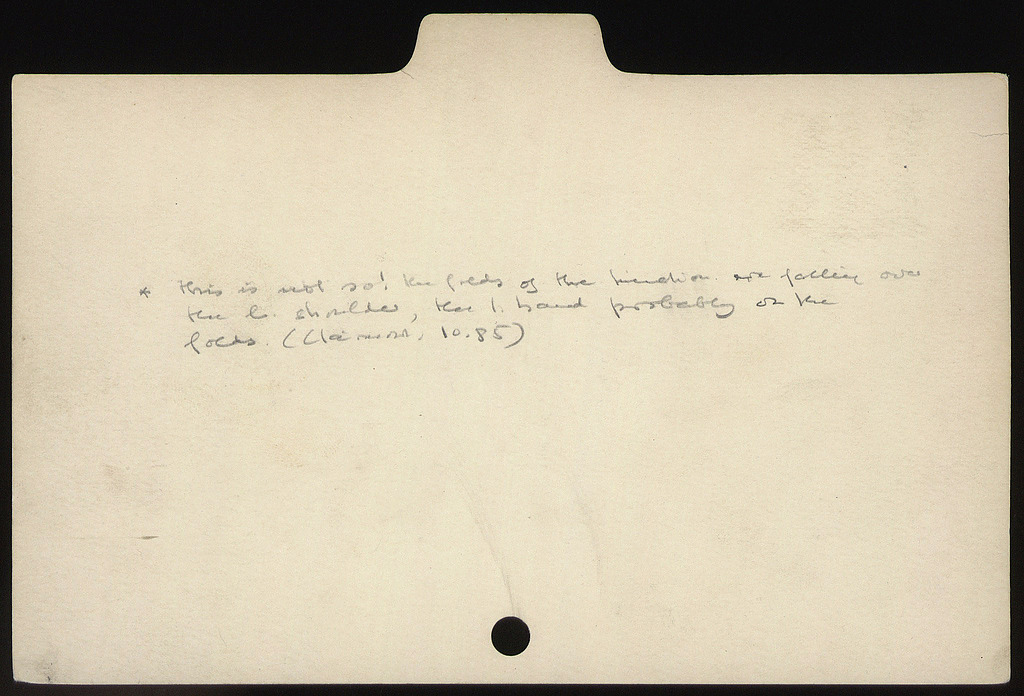 * this is not so! the folds of the himation are falling over
the l. shoulder, the l. hand probably on the
folds. (Clairmont, 10.85)